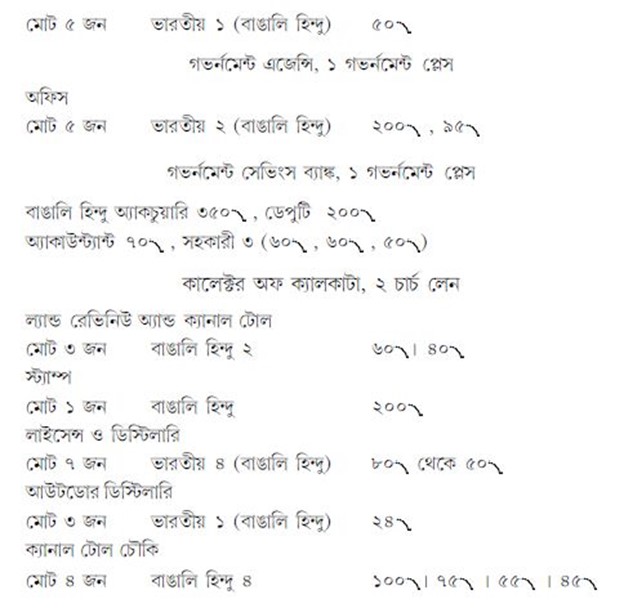 মোট ৫ জন ভারতীয় ১ (বাঙালি হিন্দু) ৫০৲
গভর্নমেন্ট এজেন্সি, ১ গভর্নমেন্ট প্লেস
অফিস
মোট ৫ জন ভারতীয় ২ (বাঙালি হিন্দু) ২০০৲ , ৯৫৲
গভর্নমেন্ট সেভিংস ব্যাঙ্ক, ১ গভর্নমেন্ট প্লেস
বাঙালি হিন্দু অ্যাকচুয়ারি ৩৫০৲ , ডেপুটি ২০০৲
অ্যাকাউন্ট্যান্ট ৭০৲ , সহকারী ৩ (৬০৲ , ৬০৲ , ৫০৲)
কালেক্টর অফ ক্যালকাটা, ২ চার্চ লেন
ল্যান্ড রেভিনিউ অ্যান্ড ক্যানাল টোল
মোট ৩ জন বাঙালি হিন্দু ২ ৬০৲। ৪০৲
স্ট্যাম্প
মোট ১ জন বাঙালি হিন্দু ২০০৲
লাইসেন্স ও ডিস্টিলারি
মোট ৭ জন ভারতীয় ৪ (বাঙালি হিন্দু) ৮০৲ থেকে ৫০৲
আউটডোর ডিস্টিলারি
মোট ৩ জন ভারতীয় ১ (বাঙালি হিন্দু) ২৪৲
ক্যানাল টোল চৌকি
মোট ৪ জন বাঙালি হিন্দু ৪ ১০০৲। ৭৫৲ । ৫৫৲ । ৪৫৲